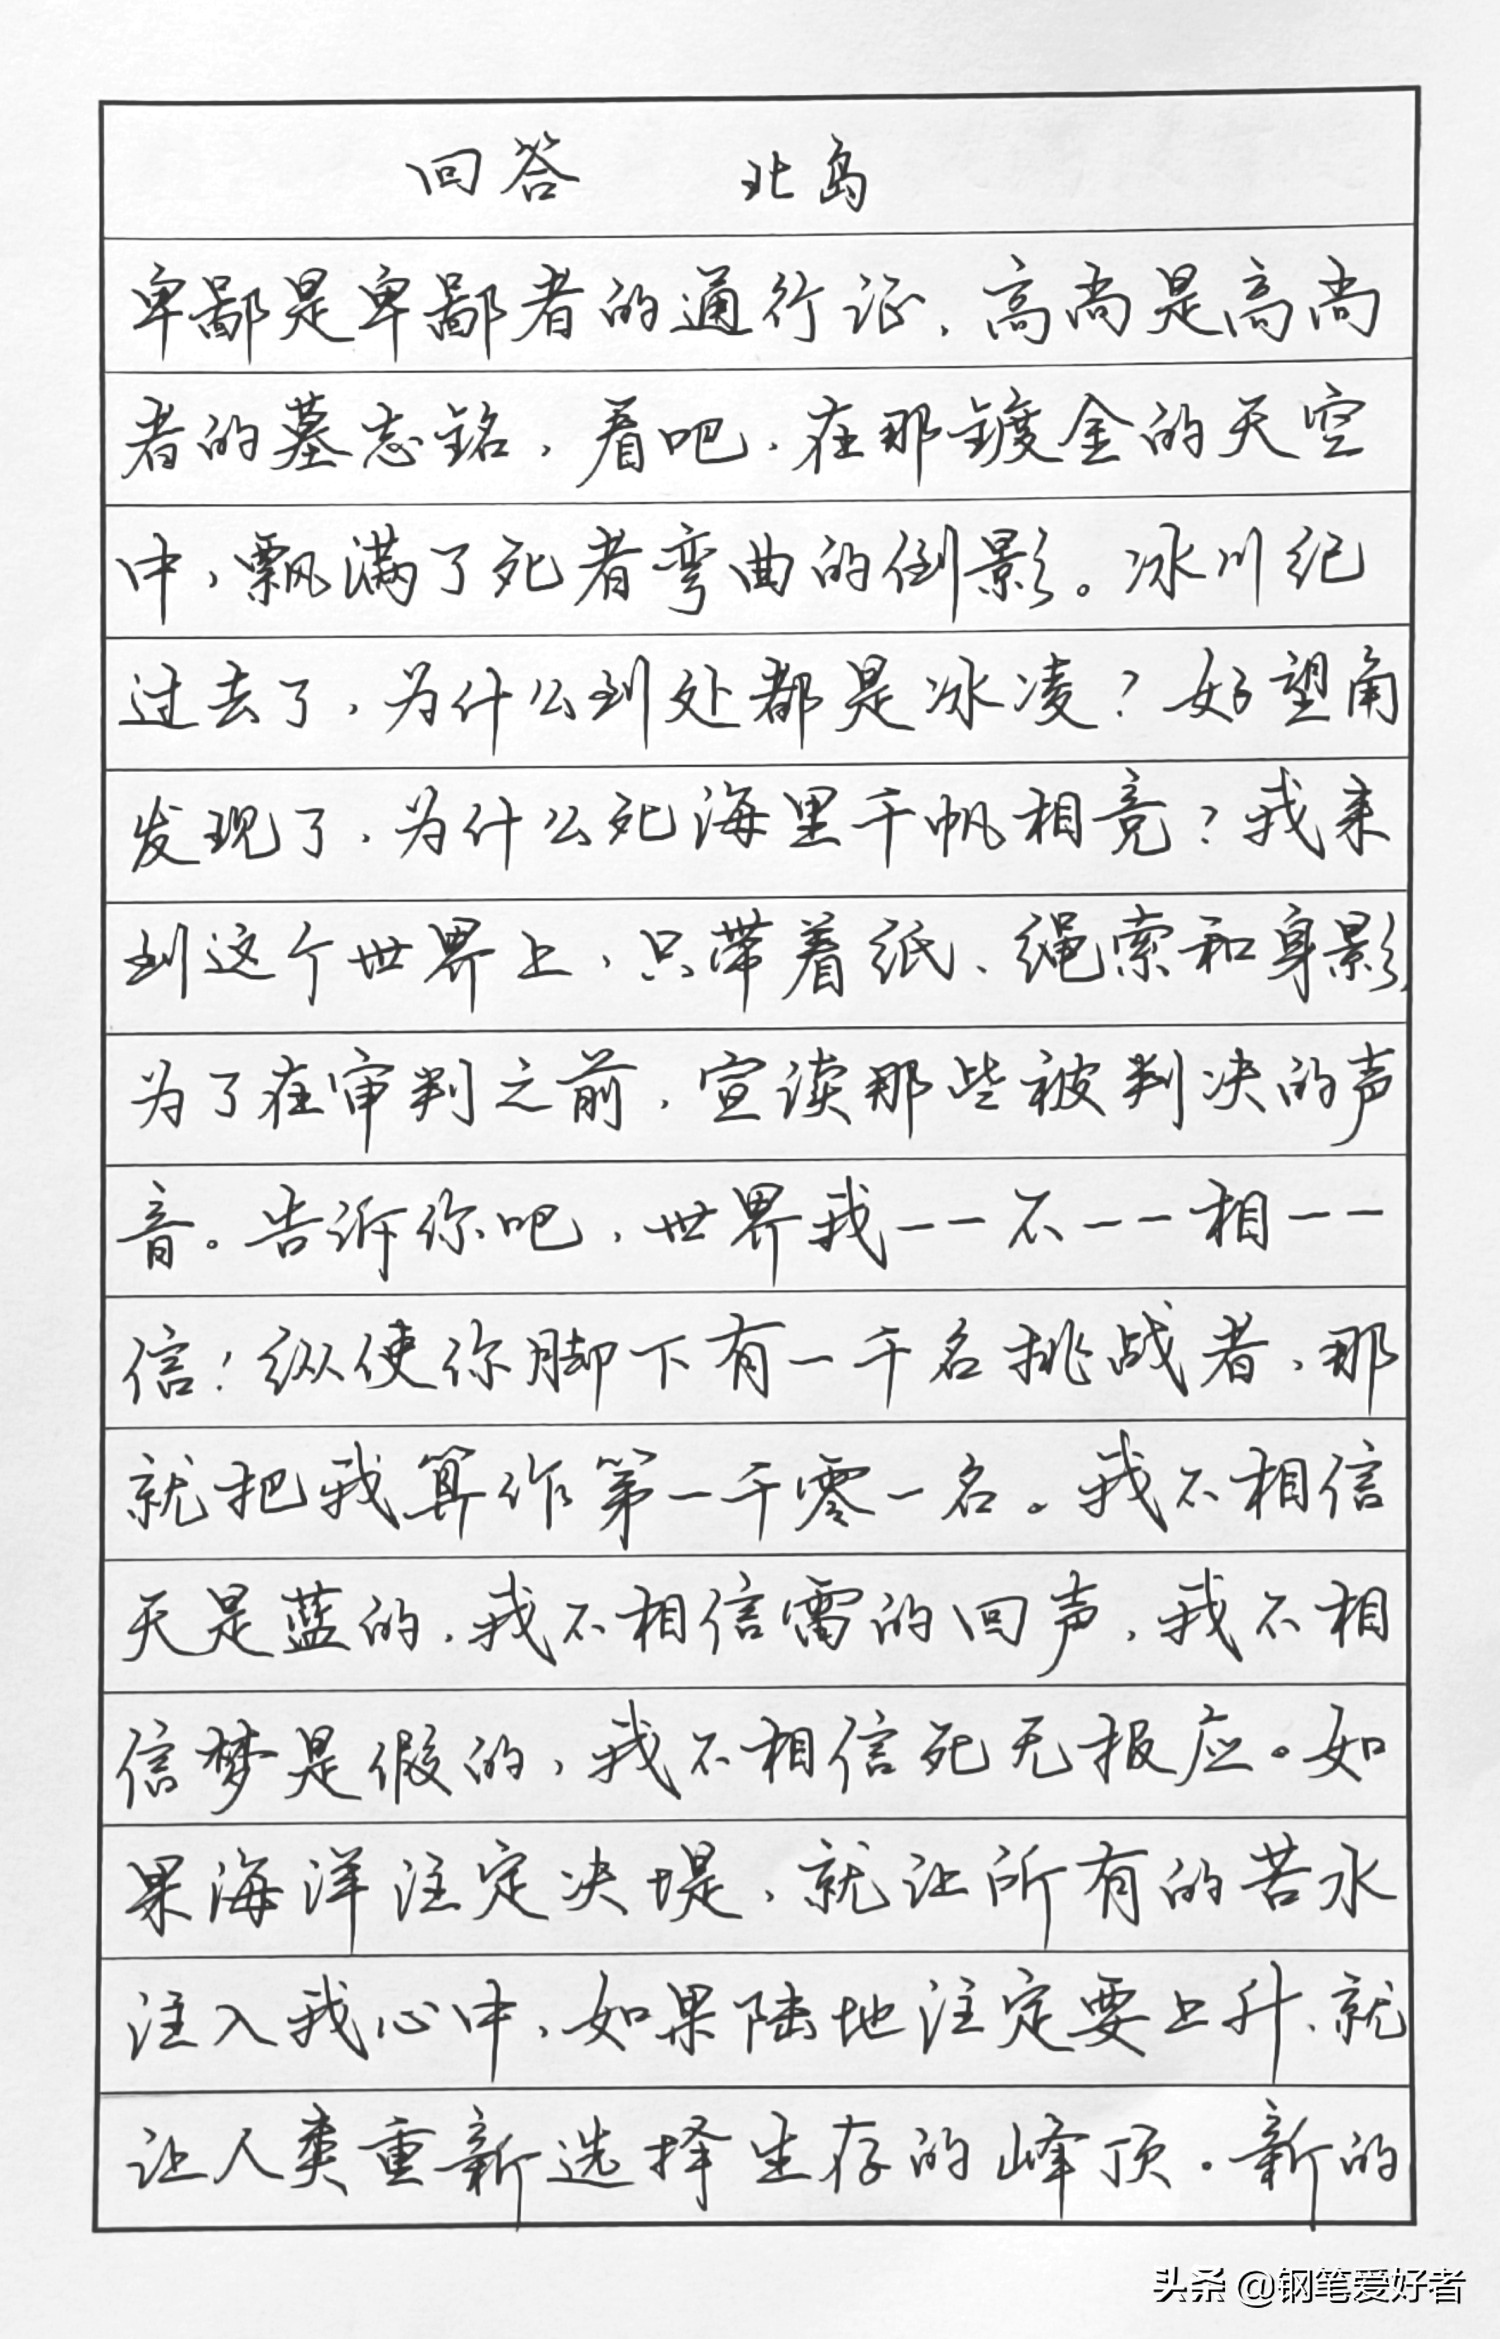 回答 北岛
卑鄙是卑鄙者的通行证，高尚是高尚
者的墓志铭，看吧，在那镀金的天空
中，飘满了死者弯曲的倒影。冰川纪
过去了，为什么到处都是冰凌？好望角
发现了，为什么死海里千帆相竞？我来
到这个世界上，只带着纸、绳索和身影，
为了在审判之前，宣读那些被判决的声
音。告诉你吧，世界我——不——相——
信！纵使你脚下有一千名挑战者，那
就把我算作第一千零一名。我不相信
天是蓝的，我不相信雷的回声，我不相
信梦是假的，我不相信死无报应。如
果海洋注定决堤，就让所有的苦水
注入我心中，如果陆地注定要上升、就
让人类重新选择生存的峰顶。新的
头条 @钢笔爱好者